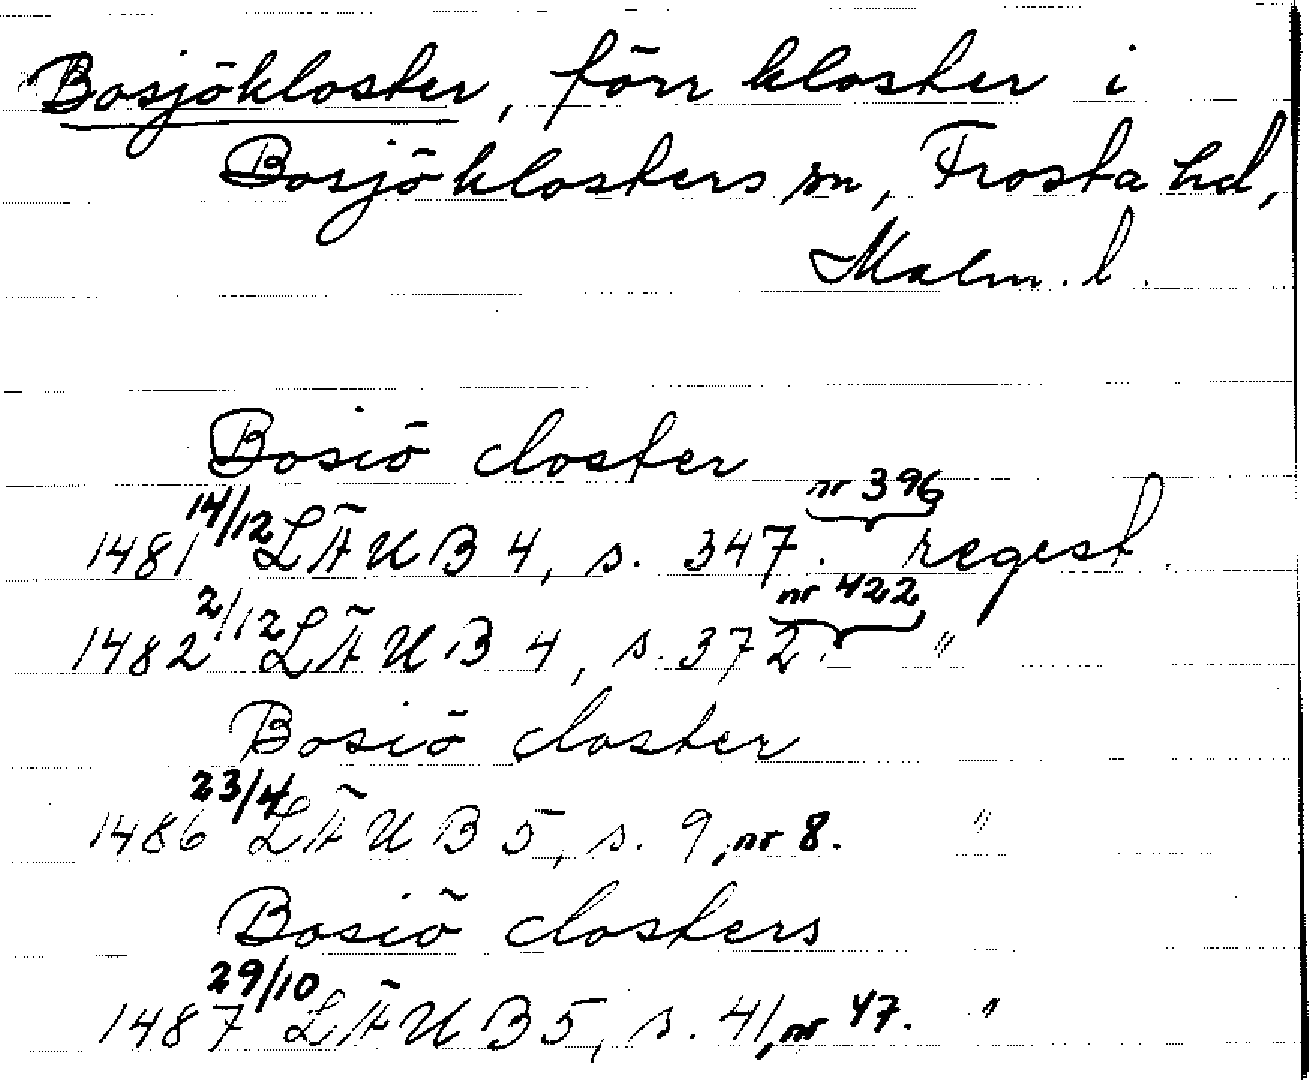 Bosjökloster, förr kloster i
Bosjöklosters sn, Frosta hd,
Malm. l.
Bosiö closter
1481 14/12 LÄUB 4, s. 347. nr 396 regest.
1482 2/12 LÄUB 4, s. 372. nr 422 "
Bosiö closter
1486 23/4 LÄUB 5, s. 9, nr 8. "
Bosiö closters
1487 29/10 LÄUB 5, s. 41, nr 47. "